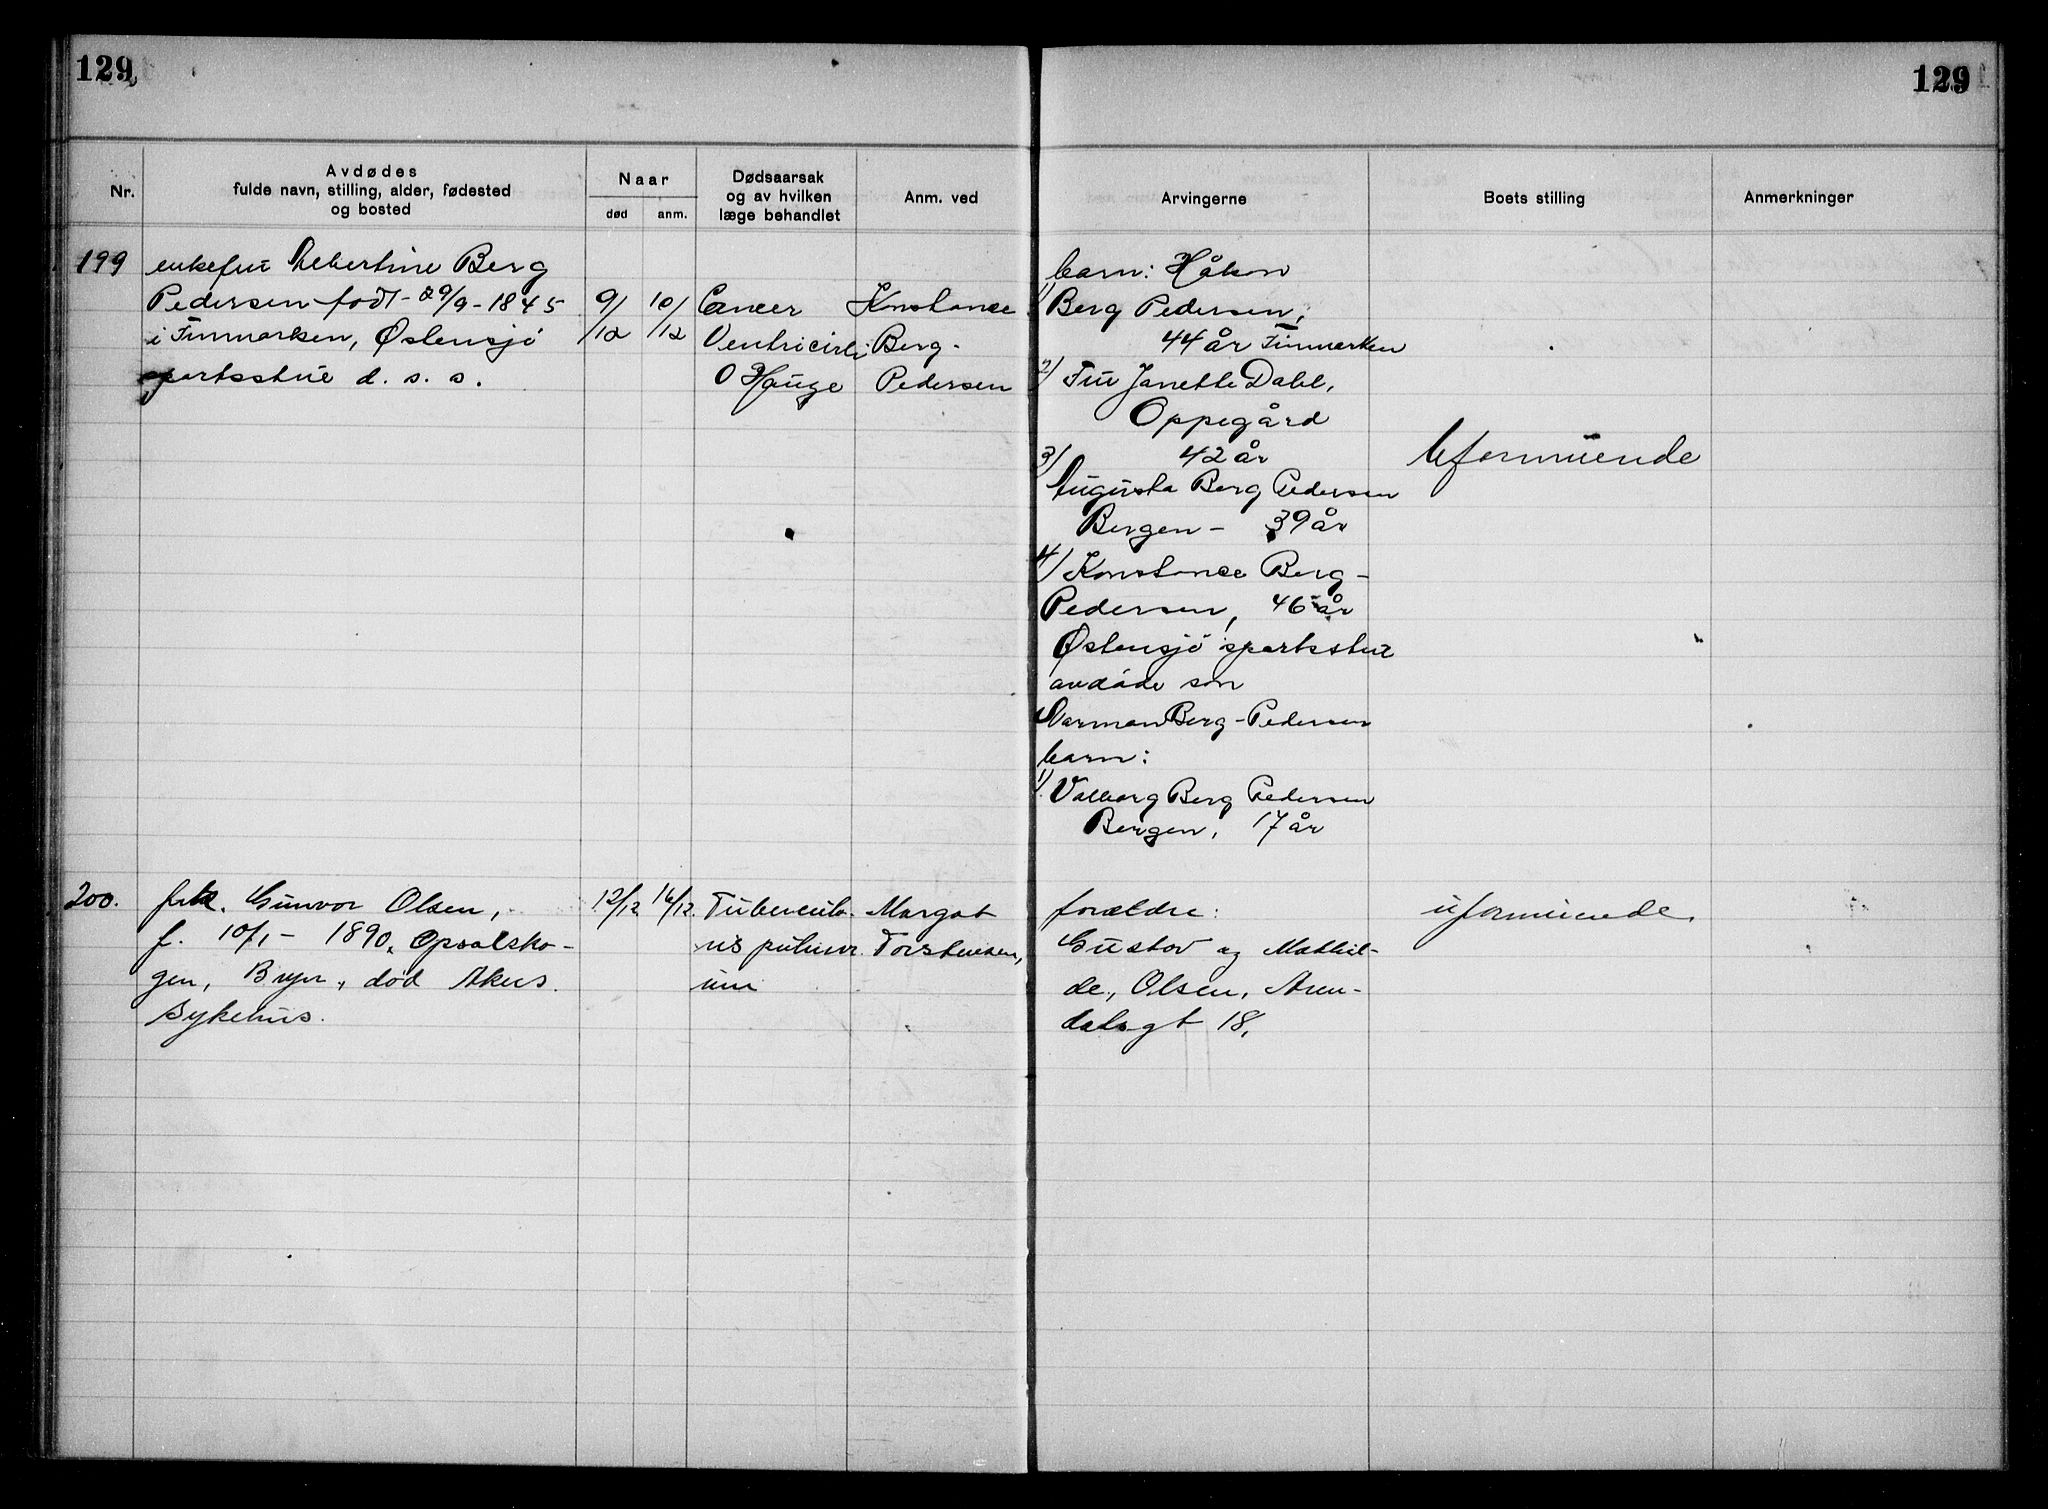 129
129
Nr.
Avdødes
fulde navn, stilling, alder, fødested
og bosted
Naar
død
anm.
Dødsaarsak
og av hvilken
læge behandlet
Anm. ved
Arvingerne
Boets stilling
Anmerkninger
199
enkefru Berg
Pedersen født - 29/9 - 1845
i Finmarken, Østensjø
sportsstue d. s. s.
9/12
10/12
Cancer
Ventriculi
O Hauge
Konstance
Berg-
Pedersen
barn: Håkon
1) Berg Pedersen,
44 år Finmarken
2) Fru Janette Dahl,
Oppegård
42 år
3) Augusta Berg Pedersen
Bergen - 39 år
4) Konstance Berg-
Pedersen, 46 år
Østensjø sportsstue
avdøde søn
Berg-Pedersen
barn:
1) Valborg Berg Pedersen
Bergen, 17 år
Uformuende
200.
frk. Gunvor Olsen,
f. 10/1 - 1890, Opsalsko-
gen, Bryn, død Akers
Sykehus.
12/12
16/12
Tuberculo-
us pulmon-
um
Margot
Torstensen,
forældre:
Gustav og Mathil-
de, Olsen, Aren-
dalsgt 18,
uformuende.